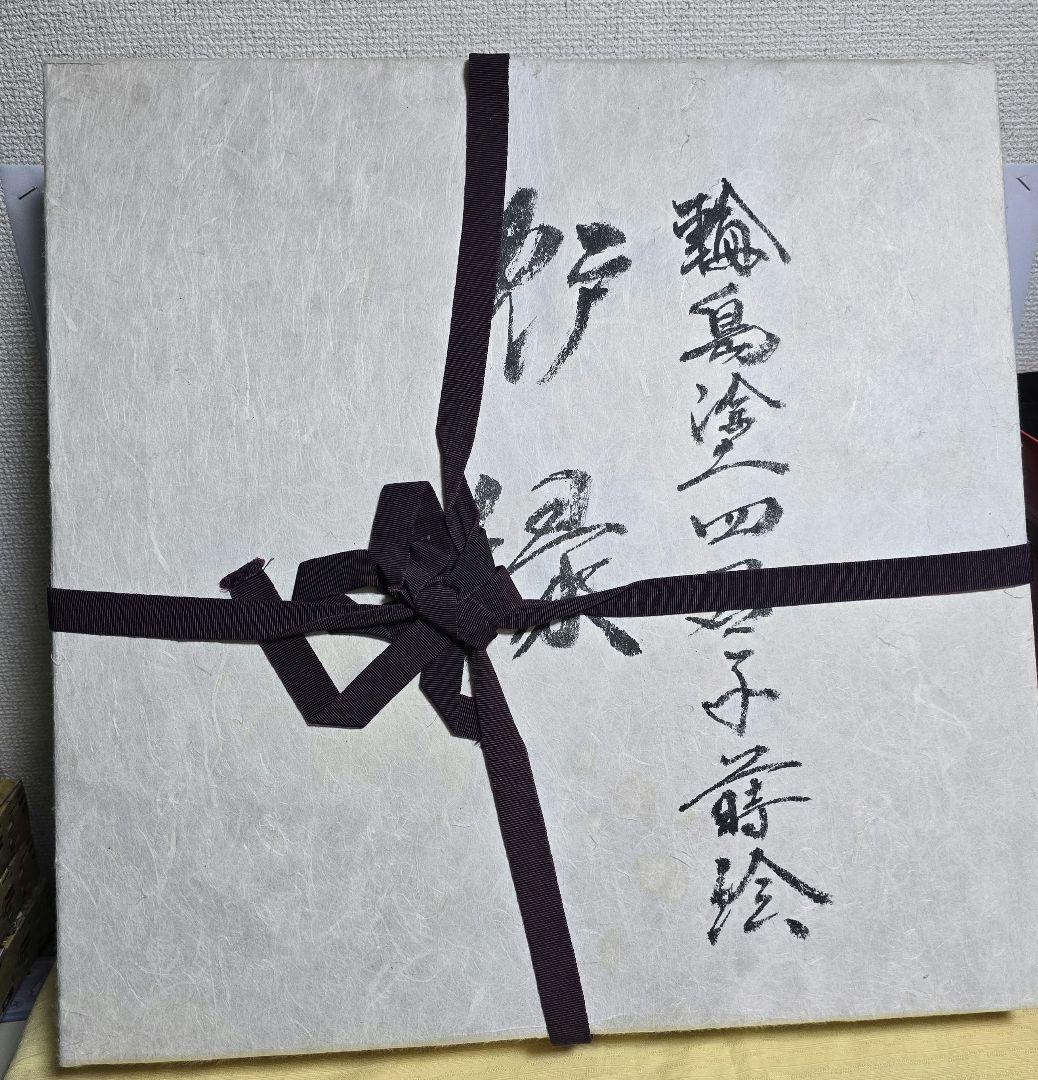 輪島塗四君子蒔絵
炉縁